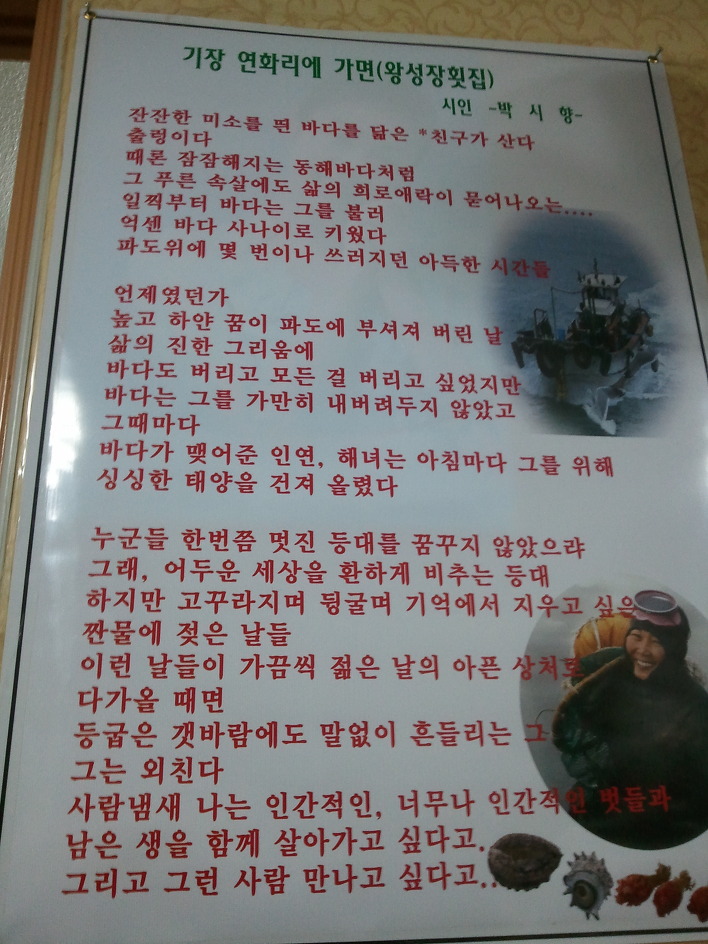 기장 연화리에 가면(왕성장횟집)
시인 -박 시 향-
잔잔한 미소를 띈 바다를 닮은 *친구가 산다
출렁이다
때론 잠잠해지는 동해바다처럼
그 푸른 속살에도 삶의 희로애락이 묻어나오는....
일찍부터 바다는 그를 불러
억센 바다 사나이로 키웠다
파도위에 몇 번이나 쓰러지던 아득한 시간들
언제였던가
높고 하얀 꿈이 파도에 부셔져 버린 날
삶의 진한 그리움에
바다도 버리고 모든 걸 버리고 싶었지만
바다는 그를 가만히 내버려두지 않았고
그때마다
바다가 맺어준 인연, 해녀는 아침마다 그를 위해
싱싱한 태양을 건져 올렸다
누군들 한번쯤 멋진 등대를 꿈꾸지 않았으랴
그래, 어두운 세상을 환하게 비추는 등대
하지만 고꾸라지며 뒹굴며 기억에서 지우고 싶은
짠물에 젖은 날들
이런 날들이 가끔씩 젊은 날의 아픈 상처로
다가올 때면
등굽은 갯바람에도 말없이 흔들리는 그
그는 외친다
사람냄새 나는 인간적인, 너무나 인간적인 벗들과
남은 생을 함께 살아가고 싶다고.
그리고 그런 사람 만나고 싶다고..